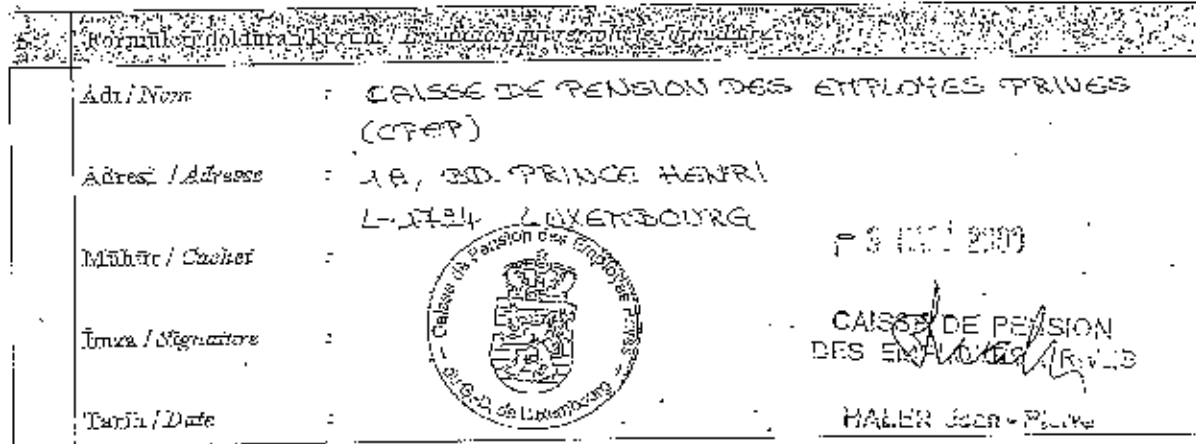 Formuleri dolduran kurum / Institution qui remplit le formulaire
Adı / Nom : CAISSE DE PENSION DES EMPLOYES PRIVES
(CPEP)
Adresi / Adresse : 1A, BD. PRINCE HENRI
L-1724 LUXEMBOURG
Mühür / Cachet :
Caisse de Pension des Employés Privés
du G.-D. de Luxembourg
İmza / Signature :
CAISSE DE PENSION
DES EMPLOYES PRIVES
Tarih / Date :
HALER Jean-Pierre